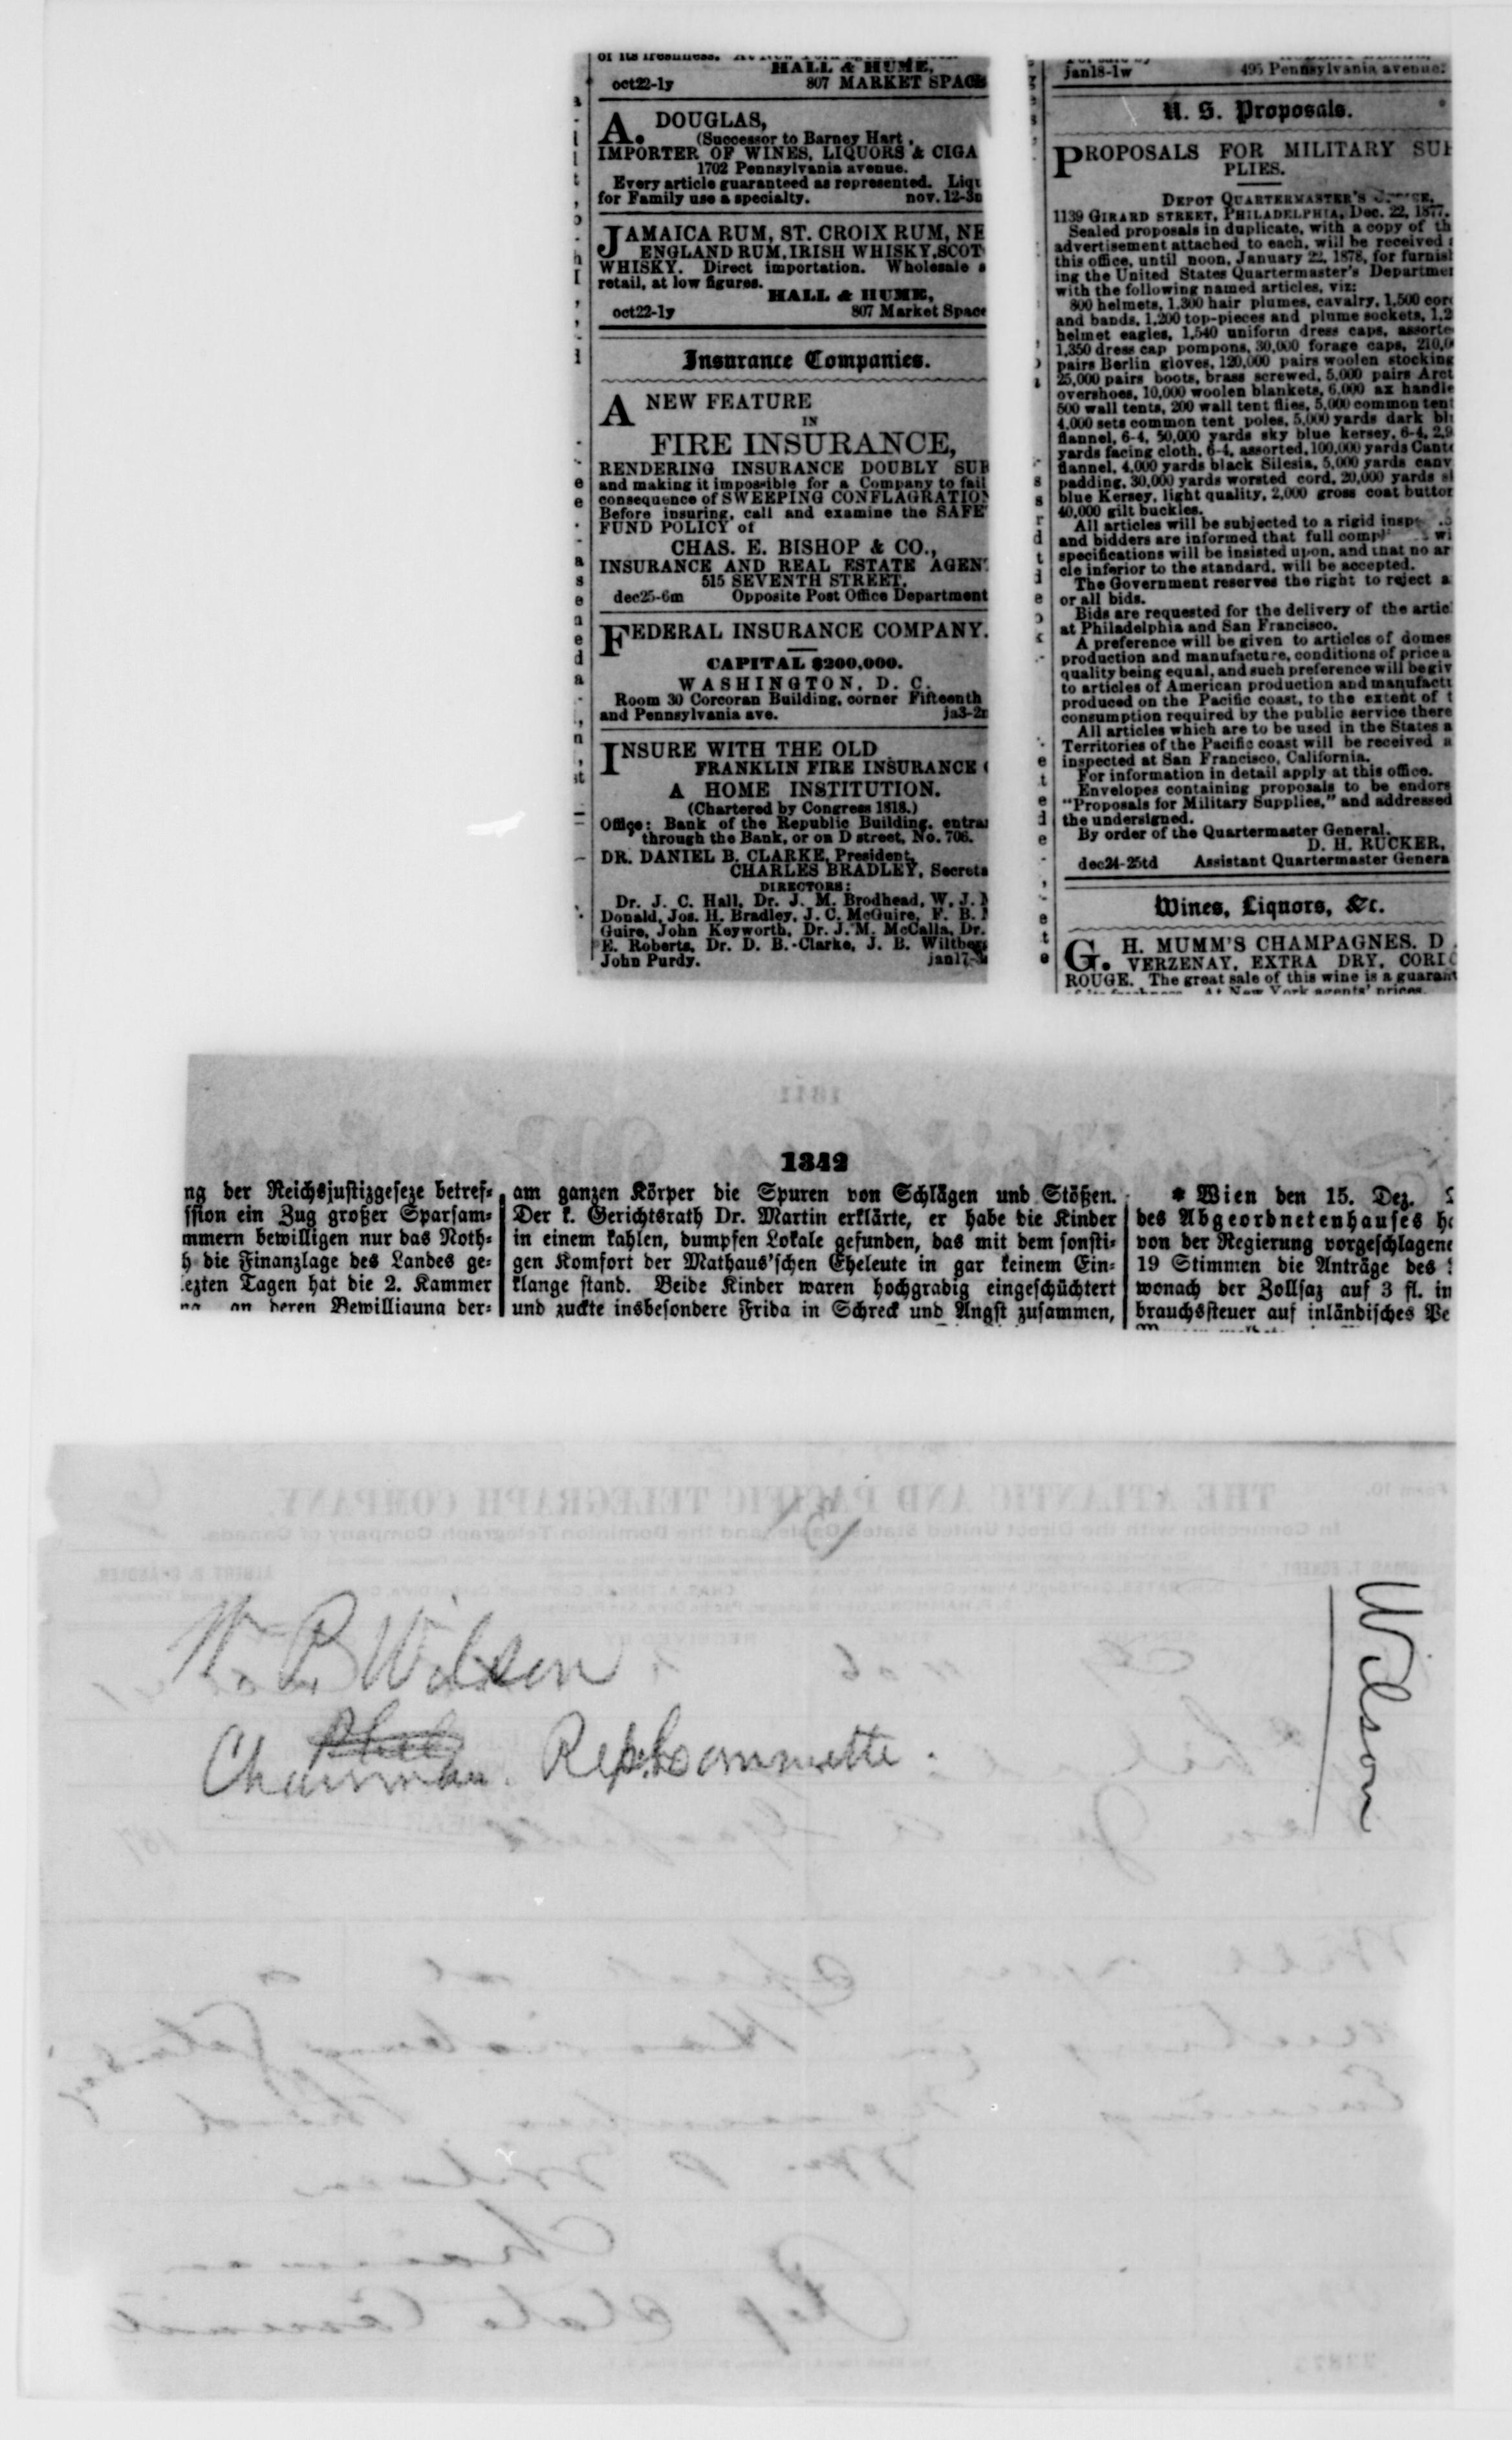 HALL & HUME,
oct22-1y 807 MARKET SPACE
A. DOUGLAS,
(Successor to Barney Hart,
IMPORTER OF WINES, LIQUORS & CIGA
1702 Pennsylvania avenue.
Every article guaranteed as represented. Liqu
for Family use a specialty. nov.12-3m
JAMAICA RUM, ST. CROIX RUM, NE
ENGLAND RUM, IRISH WHISKY, SCOT
WHISKY. Direct importation. Wholesale
retail, at low figures.
HALL & HUME,
oct22-1y 807 Market Space
Insurance Companies.
A NEW FEATURE
IN
FIRE INSURANCE,
RENDERING INSURANCE DOUBLY SUR
and making it impossible for a Company to fail
consequence of SWEEPING CONFLAGRATION
Before insuring, call and examine the SAFE
FUND POLICY of
CHAS. E. BISHOP & CO.,
INSURANCE AND REAL ESTATE AGEN
515 SEVENTH STREET,
dec25-6m Opposite Post Office Department
FEDERAL INSURANCE COMPANY.
CAPITAL $200,000.
WASHINGTON, D. C.
Room 30 Corcoran Building, corner Fifteenth
and Pennsylvania ave. ja3-2
INSURE WITH THE OLD
FRANKLIN FIRE INSURANCE
A HOME INSTITUTION.
(Chartered by Congress 1818.)
Office: Bank of the Republic Building, entra
through the Bank, or on D street, No. 706.
DR. DANIEL B. CLARKE, President,
CHARLES BRADLEY, Secreta
DIRECTORS:
Dr. J. C. Hall, Dr. J. M. Brodhead, W. J.
Donald, Jos. H. Bradley, J. C. McGuire, F. B.
Guire, John Keyworth, Dr. J. M. McCalla, Dr.
E. Roberts, Dr. D. B. Clarke, J. B. Wiltber
John Purdy. jan17-
jan18-1w 495 Pennsylvania avenue.
U. S. Proposals.
PROPOSALS FOR MILITARY SUP
PLIES.
DEPOT QUARTERMASTER'S
1139 GIRARD STREET, PHILADELPHIA, Dec. 22, 1877.
Sealed proposals in duplicate, with a copy of th
advertisement attached to each, will be received
this office, until noon, January 22, 1878, for furnis
ing the United States Quartermaster's Departme
with the following named articles, viz:
800 helmets, 1,300 hair plumes, cavalry, 1,500 cor
and bands, 1,200 top-pieces and plume sockets, 1,2
helmet eagles, 1,540 uniform dress caps, assorte
1,350 dress cap pompons, 30,000 forage caps, 210,0
pairs Berlin gloves, 120,000 pairs woolen stocking
25,000 pairs boots, brass screwed, 5,000 pairs Arct
overshoes, 10,000 woolen blankets, 6,000 ax handle
500 wall tents, 200 wall tent flies, 5,000 common tent
4,000 sets common tent poles, 5,000 yards dark bl
flannel, 6-4, 50,000 yards sky blue kersey, 6-4, 2,9
yards facing cloth, 6-4, assorted, 100,000 yards Cant
flannel, 4,000 yards black Silesia, 5,000 yards canv
padding, 30,000 yards worsted cord, 20,000 yards s
blue Kersey, light quality, 2,000 gross coat button
40,000 gilt buckles.
All articles will be subjected to a rigid insp
and bidders are informed that full compl wi
specifications will be insisted upon, and that no ar
cle inferior to the standard, will be accepted.
The Government reserves the right to reject a
or all bids.
Bids are requested for the delivery of the artic
at Philadelphia and San Francisco.
A preference will be given to articles of domes
production and manufacture, conditions of price a
quality being equal, and such preference will be giv
to articles of American production and manufactu
produced on the Pacific coast, to the extent of t
consumption required by the public service there
All articles which are to be used in the States a
Territories of the Pacific coast will be received a
inspected at San Francisco, California.
For information in detail apply at this office.
Envelopes containing proposals to be endors
"Proposals for Military Supplies," and addressed
the undersigned.
By order of the Quartermaster General.
D. H. RUCKER,
dec24-25td Assistant Quartermaster Genera
Wines, Liquors, &c.
G. H. MUMM'S CHAMPAGNES. D
VERZENAY, EXTRA DRY, CORD
ROUGE. The great sale of this wine is a guarant
At New York agents' prices.
1342
ng der Reichsjustizgeseze betref-
ssion ein Zug großer Sparsam-
mmern bewilligen nur das Noth-
h die Finanzlage des Landes ge-
lezten Tagen hat die 2. Kammer
an deren Bewilligung der-
am ganzen Körper die Spuren von Schlägen und Stößen.
Der k. Gerichtsrath Dr. Martin erklärte, er habe die Kinder
in einem kahlen, dumpfen Lokale gefunden, das mit dem sonsti-
gen Komfort der Mathaus'schen Eheleute in gar keinem Ein-
klange stand. Beide Kinder waren hochgradig eingeschüchtert
und zuckte insbesondere Frida in Schreck und Angst zusammen,
* Wien den 15. Dez.
des Abgeordnetenhauses h
von der Regierung vorgeschlagene
19 Stimmen die Anträge des
wonach der Zollsaz auf 3 fl. in
brauchssteuer auf inländisches Pe
THE ATLANTIC AND PACIFIC TELEGRAPH COMPANY.
Wm B Wilson
Chairman. Rep. Committe.
Wilson